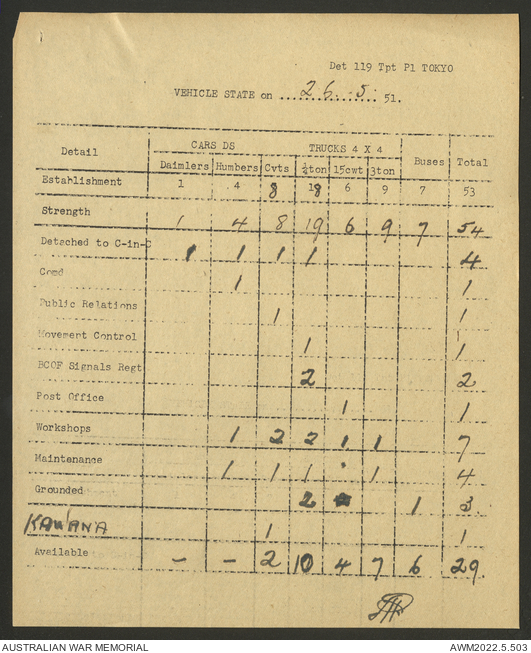 Det 119 Tpt Pl TOKYO
VEHICLE STATE on 26.5. 51.
Detail CARS DS TRUCKS 4 X 4 Buses Total
Daimlers Humbers Cvts ¼ton 15cwt 3ton
Establishment 1 4 8 18 6 9 7 53
Strength 1 4 8 19 6 9 7 54
Detached to C-in-C 1 1 1 1 4
Comd 1 1
Public Relations 1 1
Movement Control 1 1
BCOF Signals Regt 2 2
Post Office 1 1
Workshops 1 2 2 1 1 7
Maintenance 1 1 1 1 4
Grounded 2 1 3
KAWANA 1 1
Available - - 2 10 4 7 6 29
AUSTRALIAN WAR MEMORIAL AWM2022.5.503